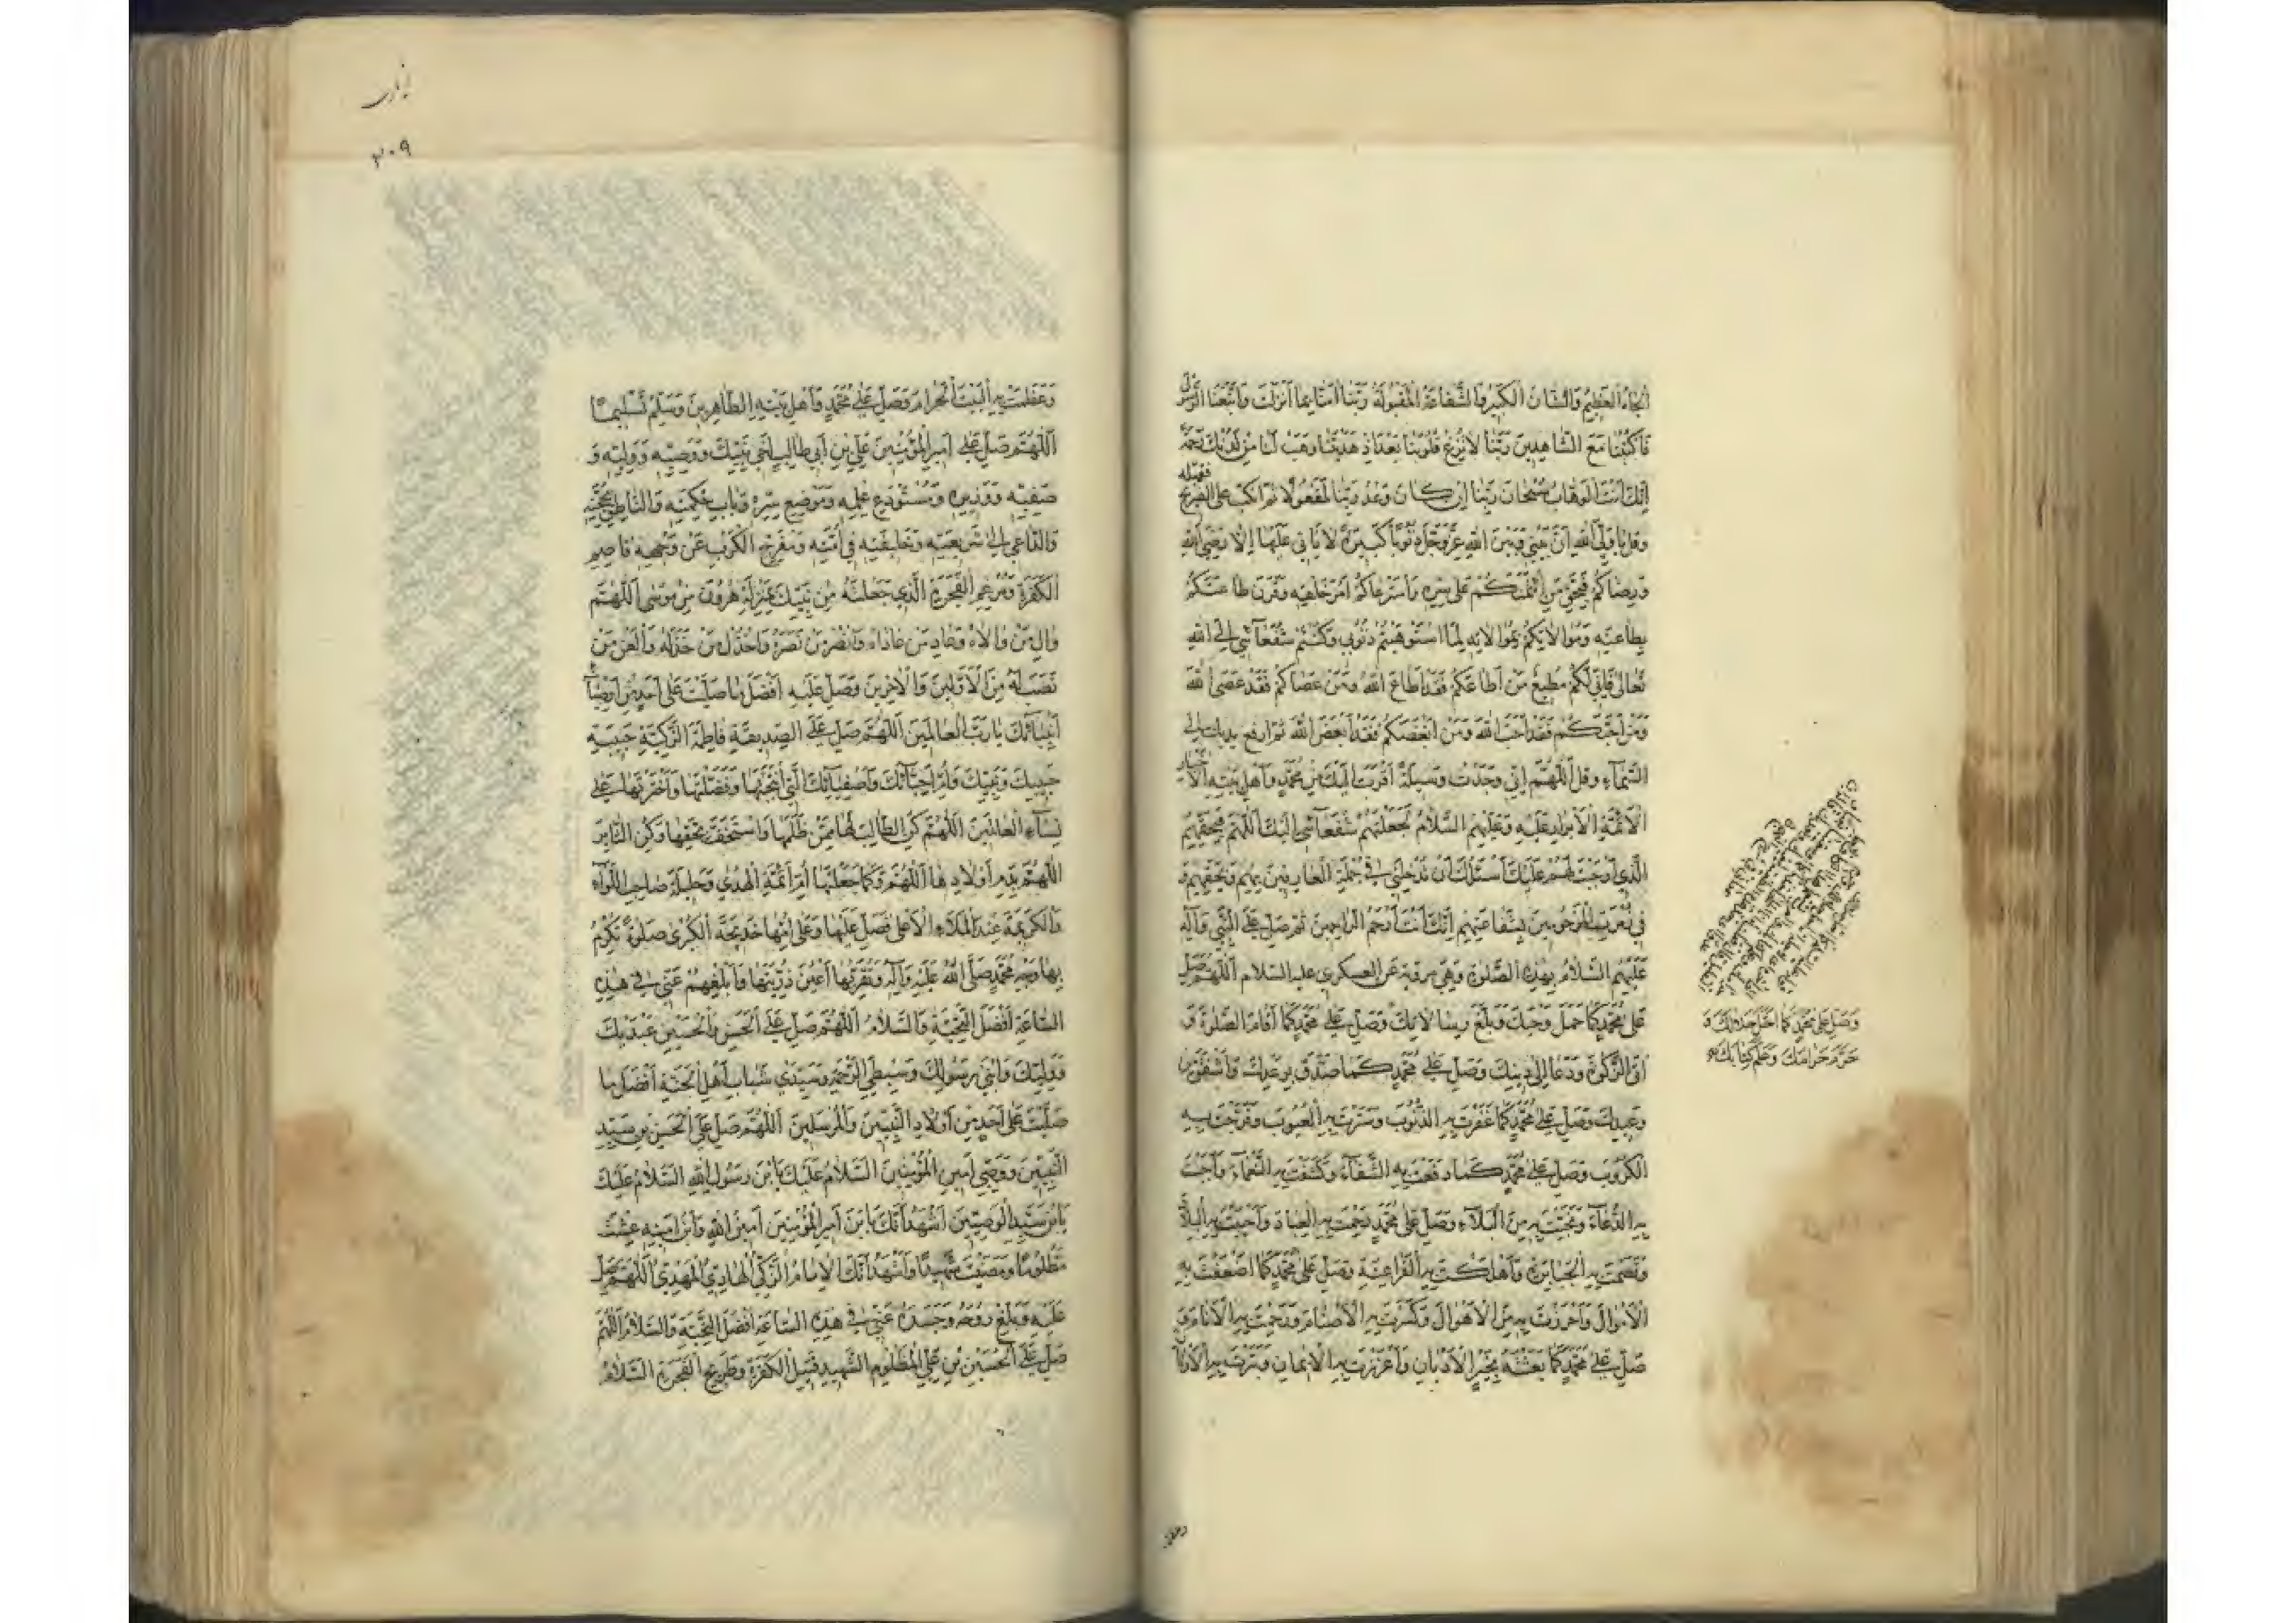 الْجَاهُ الْعَظِيمُ وَالشَّانُ الْكَبِيرُ وَالشَّفَاعَةُ الْمَقْبُولَةُ رَبَّنَا آمَنَّا بِمَا أَنْزَلْتَ وَاتَّبَعْنَا الرَّسُولَ
فَاكْتُبْنَا مَعَ الشَّاهِدِينَ رَبَّنَا لَا تُزِغْ قُلُوبَنَا بَعْدَ إِذْ هَدَيْتَنَا وَهَبْ لَنَا مِنْ لَدُنْكَ رَحْمَةً
إِنَّكَ أَنْتَ الْوَهَّابُ سُبْحَانَ رَبِّنَا إِنْ كَانَ وَعْدُ رَبِّنَا لَمَفْعُولًا ثم انكب على الضريح فقبله
وقل يَا وَلِيَّ اللهِ إِنَّ بَيْنِي وَبَيْنَ اللهِ عَزَّ وَجَلَّ ذُنُوبًا كَبِيرَةً لَا يَأْتِي عَلَيْهَا إِلَّا رِضَى اللهِ
وَرِضَاكُمْ فَبِحَقِّ مَنِ ائْتَمَنَكُمْ عَلَى سِرِّهِ وَاسْتَرْعَاكُمْ أَمْرَ خَلْقِهِ وَقَرَنَ طَاعَتَكُمْ
بِطَاعَتِهِ وَمُوَالَاتَكُمْ بِمُوَالَاتِهِ لَمَّا اسْتَوْهَبْتُمْ ذُنُوبِي وَكُنْتُمْ شُفَعَائِي إِلَى اللهِ
تَعَالَى فَإِنِّي لَكُمْ مُطِيعٌ مَنْ أَطَاعَكُمْ فَقَدْ أَطَاعَ اللهَ وَمَنْ عَصَاكُمْ فَقَدْ عَصَى اللهَ
وَمَنْ أَحَبَّكُمْ فَقَدْ أَحَبَّ اللهَ وَمَنْ أَبْغَضَكُمْ فَقَدْ أَبْغَضَ اللهَ ثم ارفع يديك إلى
السَّمَاءِ وقل اللَّهُمَّ إِنِّي وَجَدْتُ وَسِيلَةً أَقْرَبَ إِلَيْكَ مِنْ مُحَمَّدٍ وَأَهْلِ بَيْتِهِ الْأَخْيَارِ
الْأَئِمَّةِ الْأَبْرَارِ عَلَيْهِ وَعَلَيْهِمُ السَّلَامُ لَجَعَلْتُهُمْ شُفَعَائِي إِلَيْكَ اللَّهُمَّ فَبِحَقِّهِمُ
الَّذِي أَوْجَبْتَ لَهُمْ عَلَيْكَ أَسْئَلُكَ أَنْ تُدْخِلَنِي فِي جُمْلَةِ الْعَارِفِينَ بِهِمْ وَبِحَقِّهِمْ وَ
فِي زُمْرَةِ الْمَرْحُومِينَ بِشَفَاعَتِهِمْ إِنَّكَ أَنْتَ أَرْحَمُ الرَّاحِمِينَ ثم صل على النبي وآله
عَلَيْهِمُ السَّلَامُ بهذه الصلوة وهي مروية عن العسكري عليه السلام اللَّهُمَّ صَلِّ
عَلَى مُحَمَّدٍ كَمَا حَمَلَ وَحْيَكَ وَبَلَّغَ رِسَالَاتِكَ وَصَلِّ عَلَى مُحَمَّدٍ كَمَا أَقَامَ الصَّلَوةَ وَ
آتَى الزَّكَوةَ وَدَعَا إِلَى دِينِكَ وَصَلِّ عَلَى مُحَمَّدٍ كَمَا صَدَّقَ بِوَعْدِكَ وَأَشْفَقَ مِنْ
وَعِيدِكَ وَصَلِّ عَلَى مُحَمَّدٍ كَمَا غَفَرْتَ بِهِ الذُّنُوبَ وَسَتَرْتَ بِهِ الْعُيُوبَ وَفَرَّجْتَ بِهِ
الْكُرُوبَ وَصَلِّ عَلَى مُحَمَّدٍ كَمَا دَفَعْتَ بِهِ الشَّقَاءَ وَكَشَفْتَ بِهِ الْغَمَّاءَ وَأَجَبْتَ
بِهِ الدُّعَاءَ وَنَجَّيْتَ بِهِ مِنَ الْبَلَاءِ وَصَلِّ عَلَى مُحَمَّدٍ رَحِمْتَ بِهِ الْعِبَادَ وَأَحْيَيْتَ بِهِ الْبِلَادَ
وَقَصَمْتَ بِهِ الْجَبَابِرَةَ وَأَهْلَكْتَ بِهِ الْفَرَاعِنَةَ وَصَلِّ عَلَى مُحَمَّدٍ كَمَا أَضْعَفْتَ بِهِ
الْأَمْوَالَ وَأَحْرَزْتَ بِهِ مِنَ الْأَهْوَالِ وَكَسَرْتَ بِهِ الْأَصْنَامَ وَرَحِمْتَ بِهِ الْأَنَامَ وَ
صَلِّ عَلَى مُحَمَّدٍ كَمَا بَعَثْتَهُ بِخَيْرِ الْأَدْيَانِ وَأَعْزَزْتَ بِهِ الْإِيمَانَ وَتَبَّرْتَ بِهِ الْأَوْثَانَ
وَصَلِّ عَلَى مُحَمَّدٍ كَمَا أَحَلَّ حَلَالَكَ وَ
حَرَّمَ حَرَامَكَ وَعَلَّمَ كِتَابَكَ
٣٠٩
وَعَظَّمْتَ بِهِ الْبَيْتَ الْحَرَامَ وَصَلِّ عَلَى مُحَمَّدٍ وَأَهْلِ بَيْتِهِ الطَّاهِرِينَ وَسَلِّمْ تَسْلِيمًا
اللَّهُمَّ صَلِّ عَلَى أَمِيرِ الْمُؤْمِنِينَ عَلِيِّ بْنِ أَبِي طَالِبٍ أَخِي نَبِيِّكَ وَوَصِيِّهِ وَوَلِيِّهِ وَ
صَفِيِّهِ وَوَزِيرِهِ وَمُسْتَوْدَعِ عِلْمِهِ وَمَوْضِعِ سِرِّهِ وَبَابِ حِكْمَتِهِ وَالنَّاطِقِ بِحُجَّتِهِ
وَالدَّاعِي إِلَى شَرِيعَتِهِ وَخَلِيفَتِهِ فِي أُمَّتِهِ وَمُفَرِّجِ الْكَرْبِ عَنْ وَجْهِهِ قَاصِمِ
الْكَفَرَةِ وَمُرْغِمِ الْفَجَرَةِ الَّذِي جَعَلْتَهُ مِنْ نَبِيِّكَ بِمَنْزِلَةِ هَرُونَ مِنْ مُوسَى اللَّهُمَّ
وَالِ مَنْ وَالَاهُ وَعَادِ مَنْ عَادَاهُ وَانْصُرْ مَنْ نَصَرَهُ وَاخْذُلْ مَنْ خَذَلَهُ وَالْعَنْ مَنْ
نَصَبَ لَهُ مِنَ الْأَوَّلِينَ وَالْآخِرِينَ وَصَلِّ عَلَيْهِ أَفْضَلَ مَا صَلَّيْتَ عَلَى أَحَدٍ مِنْ أَوْصِيَاءِ
أَنْبِيَائِكَ يَا رَبَّ الْعَالَمِينَ اللَّهُمَّ صَلِّ عَلَى الصِّدِّيقَةِ فَاطِمَةَ الزَّكِيَّةِ حَبِيبَةِ
حَبِيبِكَ وَنَبِيِّكَ وَأُمِّ أَحِبَّائِكَ وَأَصْفِيَائِكَ الَّتِي انْتَجَبْتَهَا وَفَضَّلْتَهَا وَاخْتَرْتَهَا عَلَى
نِسَاءِ الْعَالَمِينَ اللَّهُمَّ كُنِ الطَّالِبَ لَهَا مِمَّنْ ظَلَمَهَا وَاسْتَخَفَّ بِحَقِّهَا وَكُنِ الثَّائِرَ
اللَّهُمَّ بِدَمِ أَوْلَادِهَا اللَّهُمَّ وَكَمَا جَعَلْتَهَا أُمَّ أَئِمَّةِ الْهُدَى وَحَلِيلَةَ صَاحِبِ اللِّوَاءِ
وَالْكَرِيمَةَ عِنْدَ الْمَلَاءِ الْأَعْلَى فَصَلِّ عَلَيْهَا وَعَلَى أُمِّهَا خَدِيجَةَ الْكُبْرَى صَلَوةً تُكْرِمُ
بِهَا وَجْهَ مُحَمَّدٍ صَلَّى اللهُ عَلَيْهِ وَآلِهِ وَتُقِرُّ بِهَا أَعْيُنَ ذُرِّيَّتِهَا وَأَبْلِغْهُمْ عَنِّي فِي هَذِهِ
السَّاعَةِ أَفْضَلَ التَّحِيَّةِ وَالسَّلَامِ اللَّهُمَّ صَلِّ عَلَى الْحَسَنِ وَالْحُسَيْنِ عَبْدَيْكَ
وَوَلِيَّيْكَ وَابْنَيْ رَسُولِكَ وَسِبْطَيِ الرَّحْمَةِ وَسَيِّدَيْ شَبَابِ أَهْلِ الْجَنَّةِ أَفْضَلَ مَا
صَلَّيْتَ عَلَى أَحَدٍ مِنْ أَوْلَادِ النَّبِيِّينَ وَالْمُرْسَلِينَ اللَّهُمَّ صَلِّ عَلَى الْحَسَنِ بْنِ سَيِّدِ
النَّبِيِّينَ وَوَصِيِّ أَمِيرِ الْمُؤْمِنِينَ السَّلَامُ عَلَيْكَ يَا بْنَ رَسُولِ اللهِ السَّلَامُ عَلَيْكَ
يَا بْنَ سَيِّدِ الْوَصِيِّينَ أَشْهَدُ أَنَّكَ يَا بْنَ أَمِيرِ الْمُؤْمِنِينَ أَمِينُ اللهِ وَابْنُ أَمِينِهِ عِشْتَ
مَظْلُومًا وَمَضَيْتَ شَهِيدًا وَأَشْهَدُ أَنَّكَ الْإِمَامُ الزَّكِيُّ الْهَادِي الْمَهْدِيُّ اللَّهُمَّ صَلِّ
عَلَيْهِ وَبَلِّغْ رُوحَهُ وَجَسَدَهُ عَنِّي فِي هَذِهِ السَّاعَةِ أَفْضَلَ التَّحِيَّةِ وَالسَّلَامِ اللَّهُمَّ
صَلِّ عَلَى الْحُسَيْنِ بْنِ عَلِيٍّ الْمَظْلُومِ الشَّهِيدِ قَتِيلِ الْكَفَرَةِ وَطَرِيحِ الْفَجَرَةِ السَّلَامُ